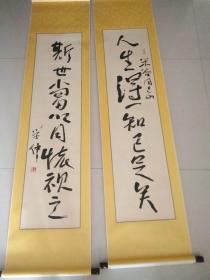 人生得一知己足矣
斯世当以同怀视之